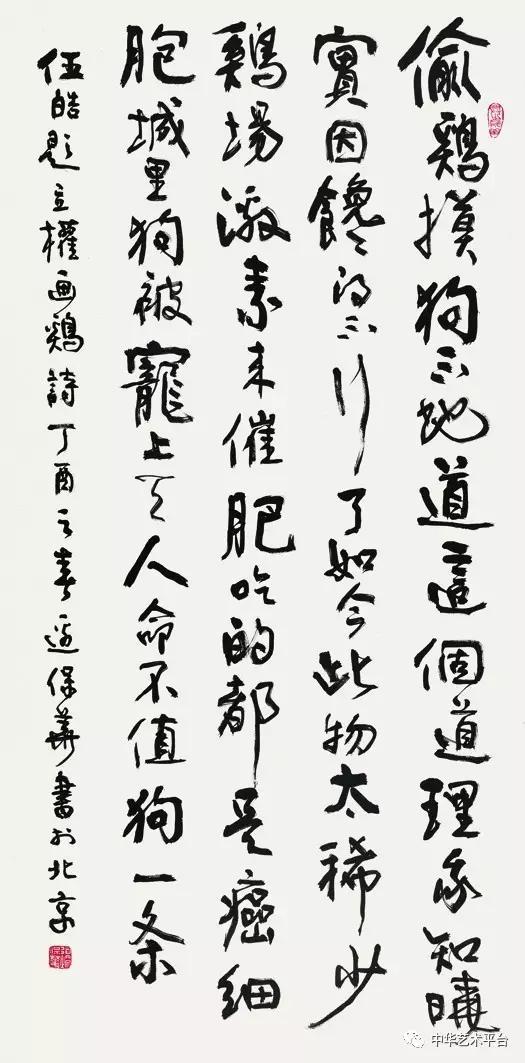 偷鷄摸狗不地道這個道理我知曉
實因饞得不行了如今此物太稀少
鷄場激素来催肥吃的都是癌细
胞城里狗被寵上天人命不值狗一条
伍皓題立權画鷄詩丁酉之春邊保華書於北京
中华艺术平台